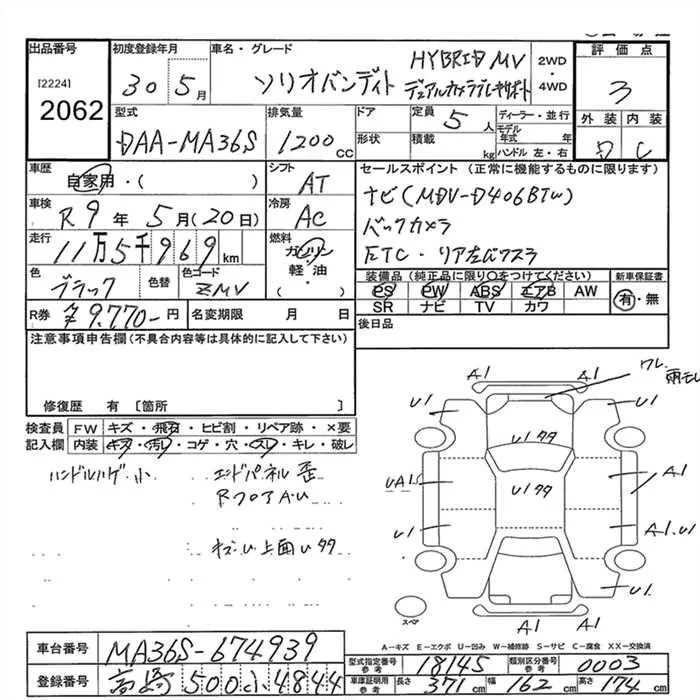 出品番号
[2224]
2062
初度登録年月
30 5月
車名・グレード
ソリオバンディト
HYBRID MV
デュアルカメラブレーキサポート
2WD
・
4WD
評価点
3
外装 内装
C
型式
DAA-MA36S
排気量
1200 CC
ドア
形状
定員
5 人
積載
kg
ディーラー・並行
モデル年式 年
ハンドル 左・右
車歴
自家用・( )
シフト
AT
セールスポイント(正常に機能するものに限ります)
ナビ(MDV-D406BTW)
バックカメラ
ETC・リア左右プスラ
車検
R9年5月(20日)
冷房
AC
走行
11万5千969km
燃料
ガソリン
・
軽・油
( )
色
ブラック
色替
色コード
ZMV
装備品(純正品に限り○をつけてください)
PS PW ABS エアB AW
SR ナビ TV カワ
新車保証書
有・無
R券 ¥9,770-円
名変期限 月 日
後日品
注意事項申告欄(不具合内容等は具体的に記入して下さい)
修復歴 有 [箇所 ]
検査員 FW キズ・飛石・ヒビ割・リペア跡・×要
記入欄 内装 キズ・汚レ・コゲ・穴・スレ・キレ・破レ
ハンドルハゲ小
エンドパネル歪
RフロアA・U
キズ・U 上面Uタタ
ワレ
雨モレ
A1 A1
U1 U1
Uタタ
UA1 U1タタ A1
U1 A1,U1
U1
スペア A1 A1
A-キズ E-エクボ U-凹み W-補修跡 S-サビ C-腐食 XX-交換済
車台番号
MA36S-674939
登録番号
高崎 500 小 4844
型式指定番号
参考
18145
類別区分番号
参考
0003
車庫証明用
参考
長さ 371cm
幅 162cm
高さ 174cm